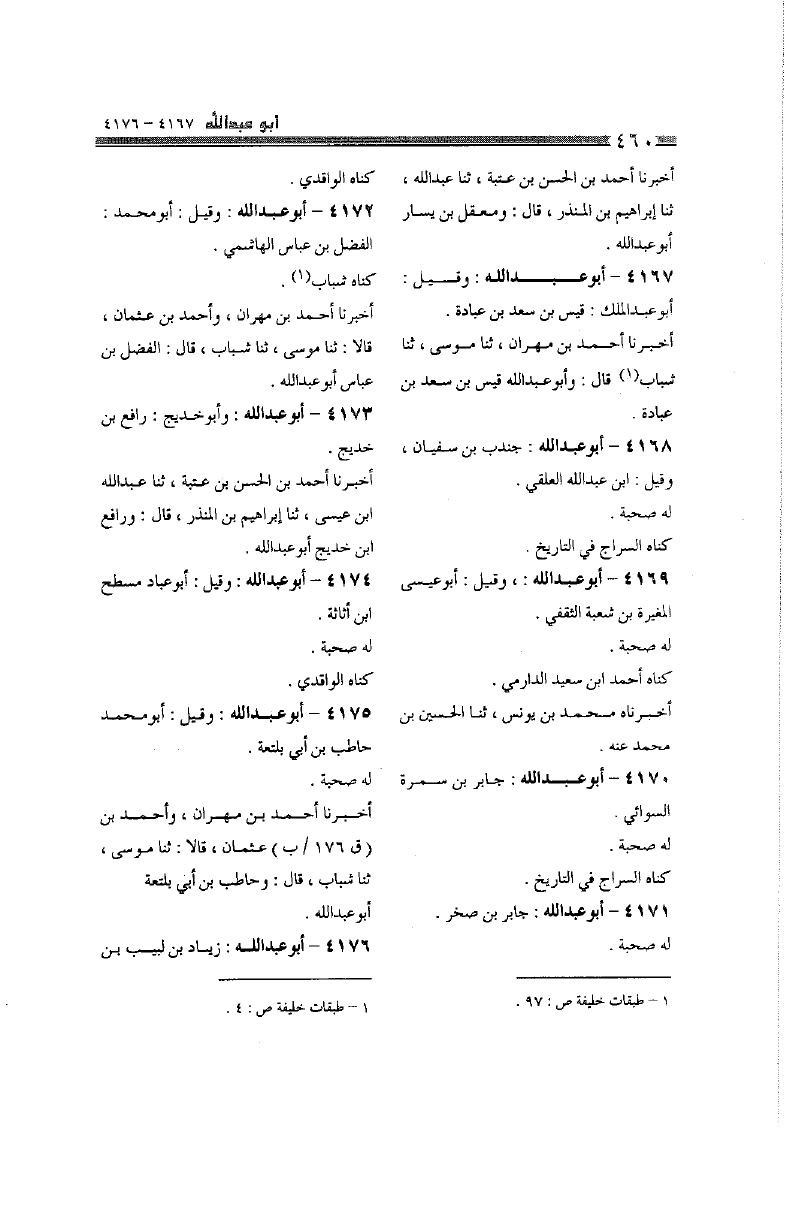 أبو عبدالله ٤١٦٧ – ٤١٧٦
٤٦٠
أخبرنا أحمد بن الحسن بن عتبة ، ثنا عبدالله ،
ثنا إبراهيم بن المنذر ، قال : ومعقل بن يسار
أبو عبدالله .
٤١٦٧ – أبو عبدالله : وقيل :
أبو عبدالملك : قيس بن سعد بن عبادة .
أخبرنا أحمد بن مهران ، ثنا موسى ، ثنا
شباب(١) قال : وأبو عبدالله قيس بن سعد بن
عبادة .
٤١٦٨ – أبو عبدالله : جندب بن سفيان ،
وقيل : ابن عبدالله العلقي .
له صحبة .
كناه السراج في التاريخ .
٤١٦٩ – أبو عبدالله : ، وقيل : أبو عيسى
المغيرة بن شعبة الثقفي .
له صحبة .
كناه أحمد ابن سعيد الدارمي .
أخبرناه محمد بن يونس ، ثنا الحسين بن
محمد عنه .
٤١٧٠ – أبو عبدالله : جابر بن سمرة
السوائي .
له صحبة .
كناه السراج في التاريخ .
٤١٧١ – أبو عبدالله : جابر بن صخر .
له صحبة .
١ – طبقات خليفة ص : ٩٧ .
كناه الواقدي .
٤١٧٢ – أبو عبدالله : وقيل : أبو محمد :
الفضل بن عباس الهاشمي .
كناه شباب(١) .
أخبرنا أحمد بن مهران ، وأحمد بن عثمان ،
قالا : ثنا موسى ، ثنا شباب ، قال : الفضل بن
عباس أبو عبدالله .
٤١٧٣ – أبو عبدالله : وأبو خديج : رافع بن
خديج .
أخبرنا أحمد بن الحسن بن عتبة ، ثنا عبدالله
ابن عيسى ، ثنا إبراهيم بن المنذر ، قال : ورافع
ابن خديج أبو عبدالله .
٤١٧٤ – أبو عبدالله : وقيل : أبو عباد مسطح
ابن أثاثة .
له صحبة .
كناه الواقدي .
٤١٧٥ – أبو عبدالله : وقيل : أبو محمد
حاطب بن أبي بلتعة .
له صحبة .
أخبرنا أحمد بن مهران ، وأحمد بن
( ق ١٧٦ / ب ) عثمان ، قالا : ثنا موسى ،
ثنا شباب ، قال : وحاطب بن أبي بلتعة
أبو عبدالله .
٤١٧٦ – أبو عبدالله : زياد بن لبيب بن
١ – طبقات خليفة ص : ٤ .